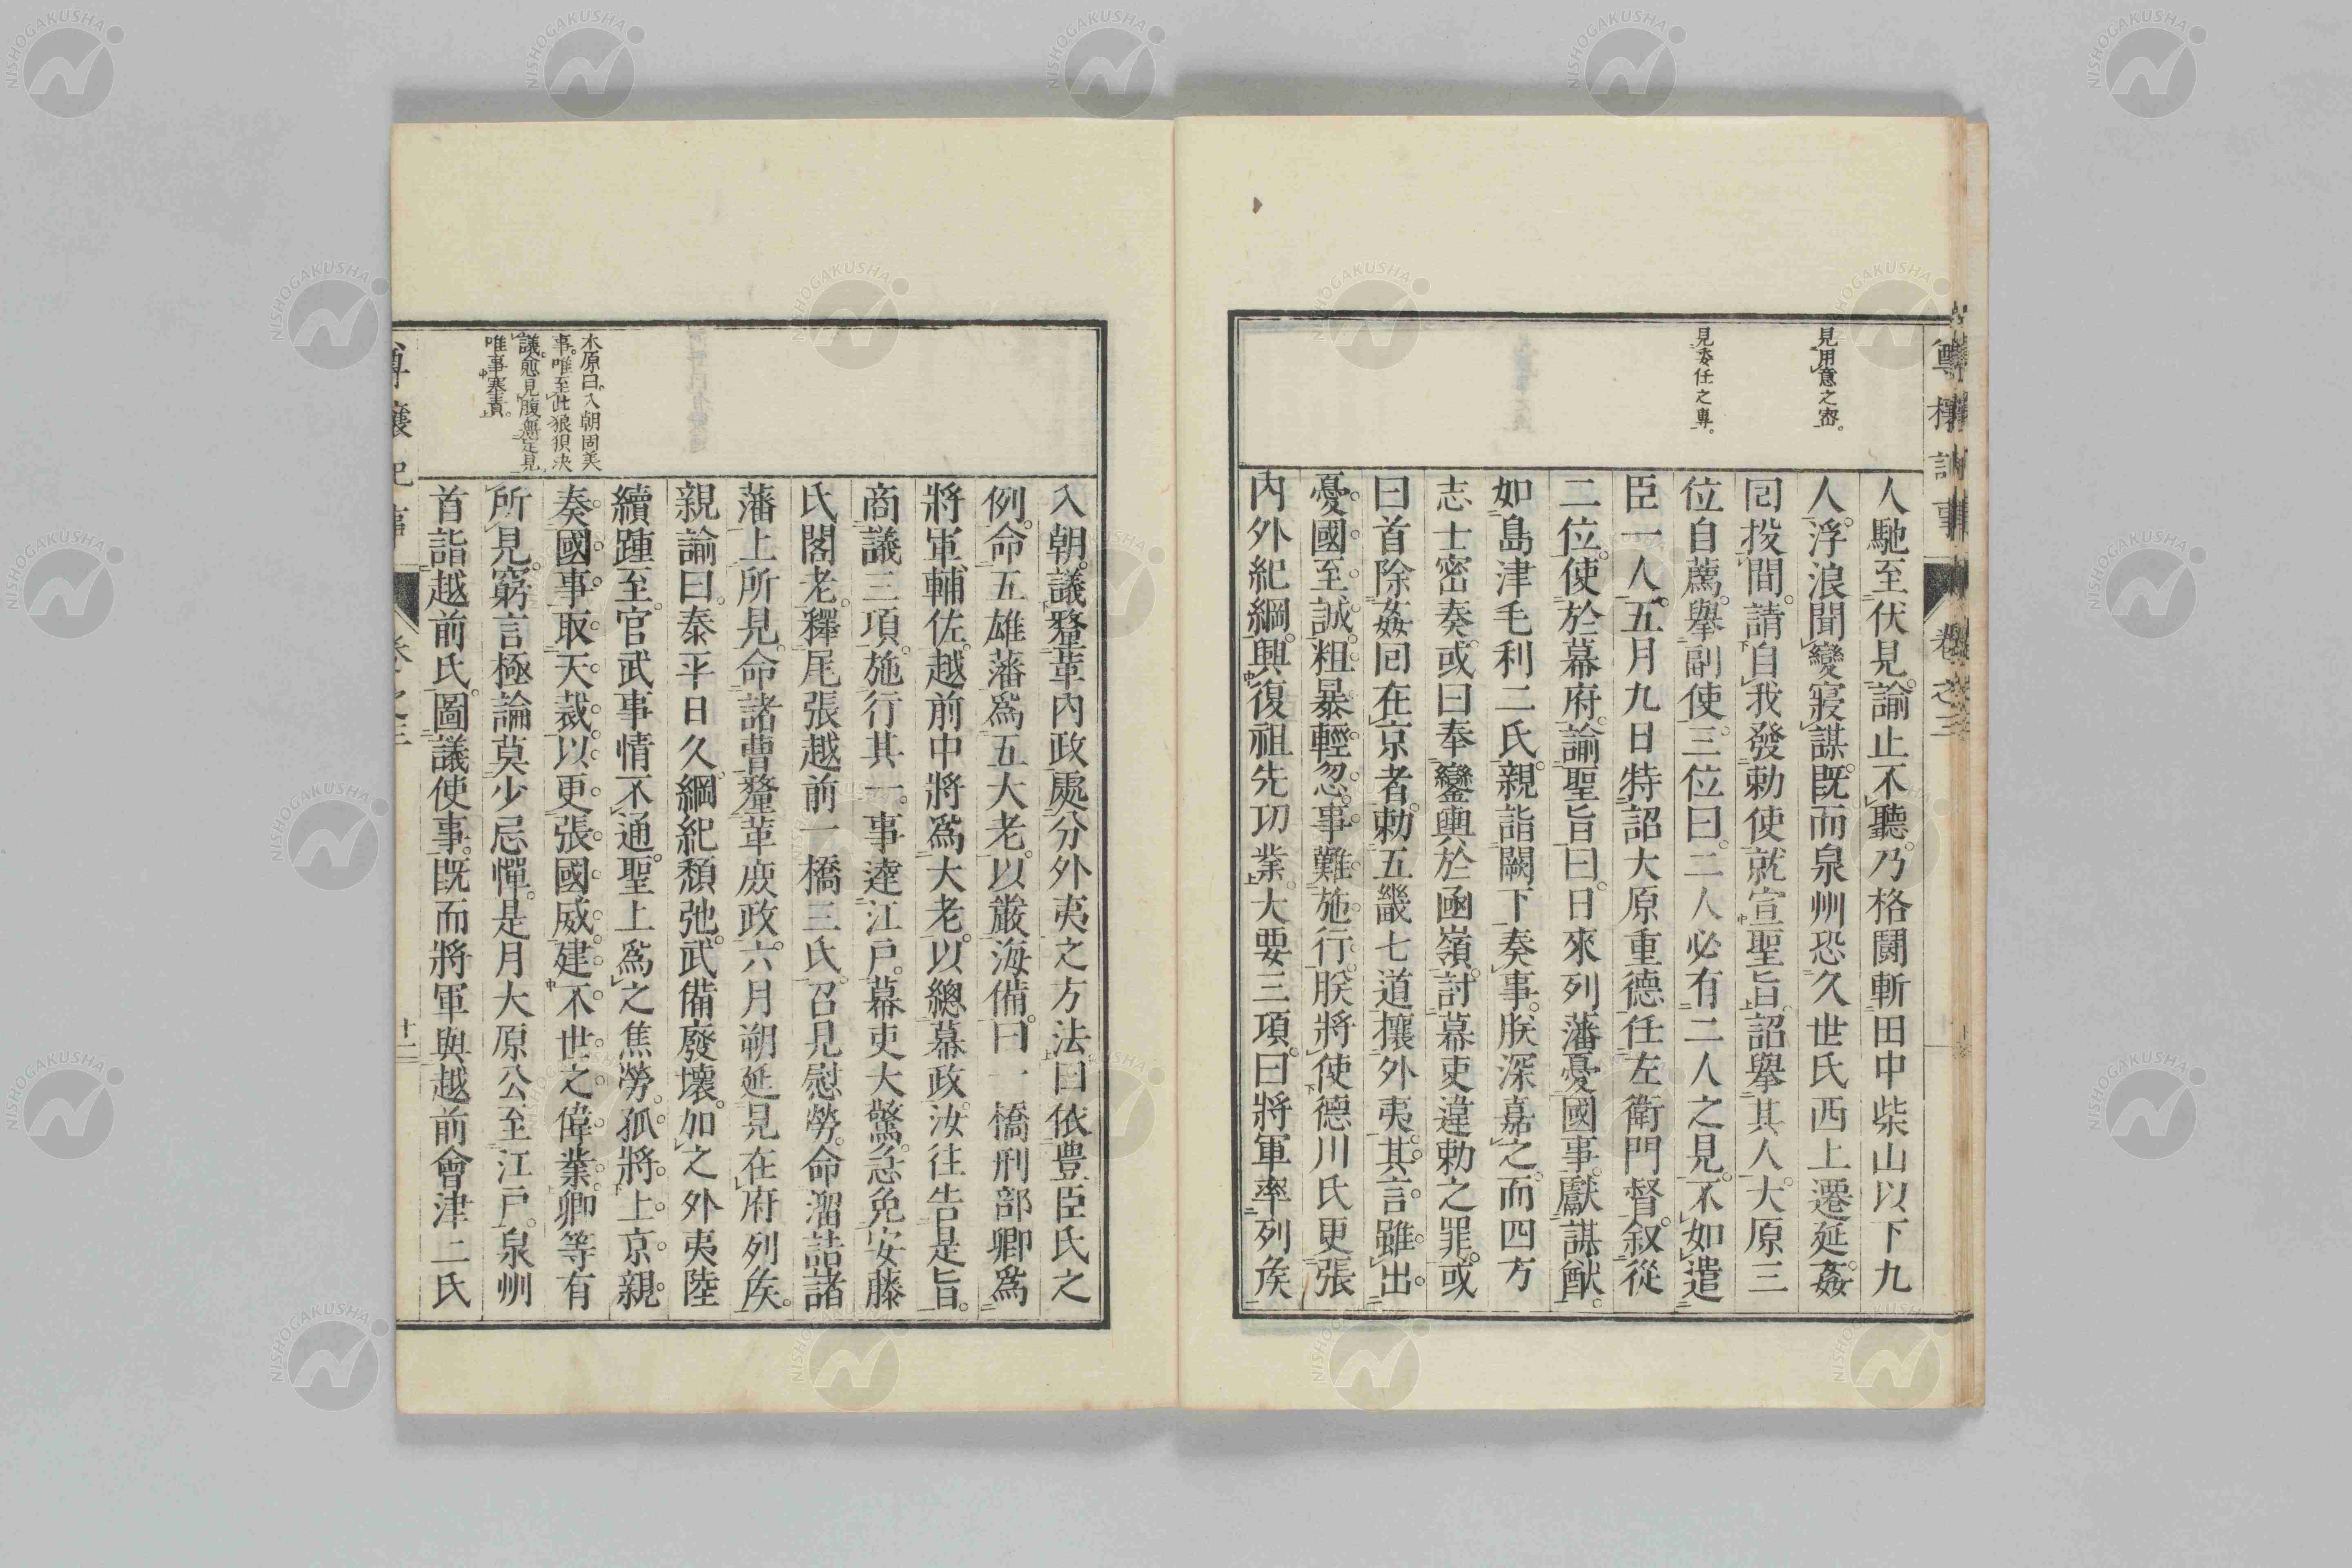 尊攘記事
卷之三
見用意之密。
見委任之專。
人馳至伏見。諭止不聽。乃格鬪斬田中柴山以下九
人。浮浪聞變寢謀。既而泉州恐久世氏西上遷延。姦
囘投間。請自我發勅使就宣聖旨。詔擧其人。大原三
位自薦。擧副使。三位曰。二人必有二人之見。不如遣
臣一人。五月九日特詔大原重德任左衛門督。叙從
二位。使於幕府。諭聖旨曰。日來列藩憂國事。獻謀猷。
如島津毛利二氏。親詣闕下奏事。朕深嘉之。而四方
志士密奏。或曰奉鑾輿於凾嶺。討幕吏違勅之罪。或
曰首除姦囘在京者。勅五畿七道攘外夷。其言雖出。
憂國至誠。粗暴輕忽。事難施行。朕將使德川氏更張
内外紀綱。興復祖先功業。大要三項。曰將軍率列矦
入朝。議釐革内政處分外夷之方法。曰依豊臣氏之
例。命五雄藩爲五大老。以嚴海備。曰一橋刑部卿爲
將軍輔佐。越前中將爲大老。以總幕政。汝往告是旨。
商議三項。施行其一。事達江戸。幕吏大驚。急免安藤
氏閣老。釋尾張越前一橋三氏。召見慰勞。命溜詰諸
藩上所見。命諸曹釐革庶政。六月朔延見在府列矦。
親諭曰。泰平日久。綱紀頽弛。武備廢壞。加之外夷陸
續踵至。官武事情不通。聖上爲之焦勞。孤將上京。親
奏國事。取天裁。以更張國威。建不世之偉業。卿等有
所見。窮言極論。莫少忌憚。是月大原公至江戸。泉州
首詣越前氏。圖議使事。既而將軍與越前會津二氏
木原曰。入朝固美
事。唯至此狼狽決
議。愈見腹無定見
唯事塞責。
尊攘記事
十二